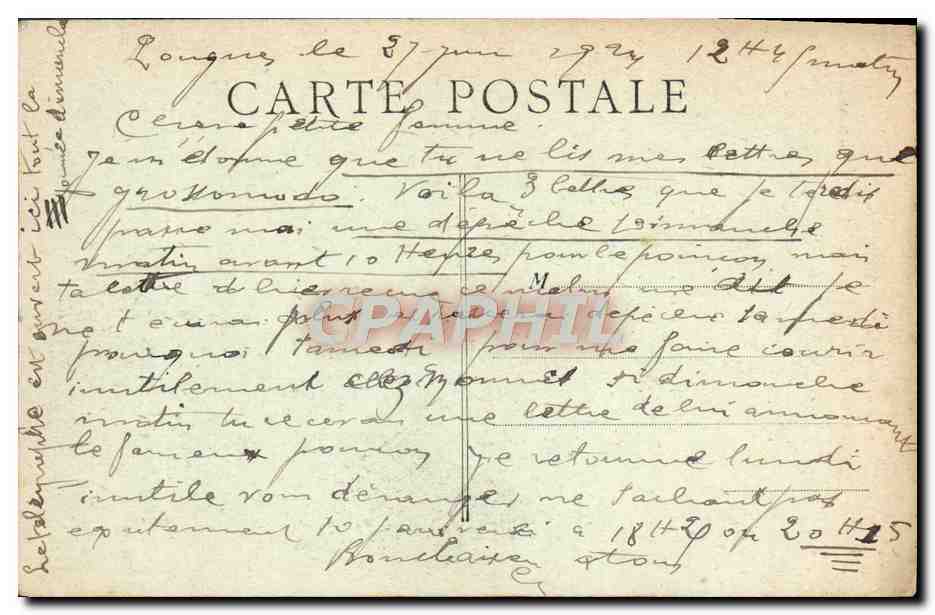 Pougues le 27 juin 192 12H45 matin
CARTE POSTALE
petite femme
Je m'étonne que tu ne lis mes lettres que
grossomodo. Voilà 3 lettres que je te dis
passe moi une dépêche Dimanche
matin avant 10 Heures pour le poinçon mais
ta lettre d'hier reçue ce matin me dit je
ne t'écrirai plus dépêche samedi
pourquoi samedi pour me faire courir
inutilement chez Monnet si dimanche
matin tu recevais une lettre de lui annonçant
le fameux poinçon Je retourne lundi
inutile vous déranger, ne sachant pas
exactement si à 18H20 ou 20H15
à tous
M
CPAPHIL
Le télégraphe est ouvert ici tout la
journée dimanche